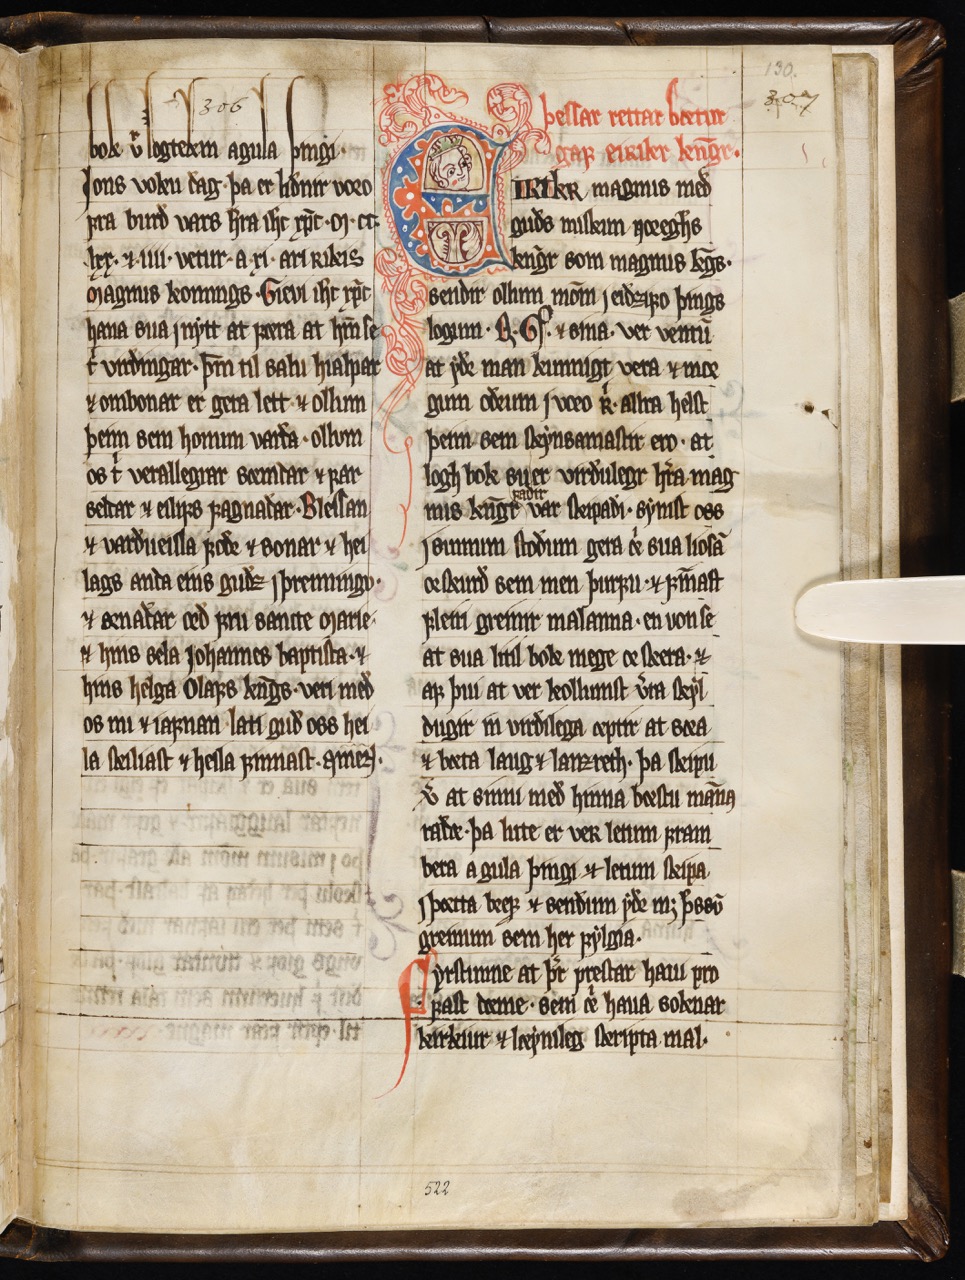 306
130.
307
bok v̄ logtekem agula þingi·
Jons voku dag· þa er liðnir voro
fra burð vars h̄ra ih̄c xp̄c· m· cc·
lxx· ⁊ iiii· vetur· a xi· ari rikis
Magnus konungs· Gievi ih̄c xp̄c
hana sua j nytt at fœra at hm̄ se
t̄ virðingar· þm̄ til salu hialpar
⁊ ombonar er gera lett ⁊ ollum
þeim sem honum varða· ollvm
os t̄ verallegrar sœmdar ⁊ far
seldar ⁊ eilifs fagnaðar· Blessan
⁊ varðueisla foðe ⁊ sonar ⁊ hei
lags anda eins guðz j þrenningv·
⁊ ᴂnaðar oeð fru sancte marie·
⁊ hins sela Johannes baptista· ⁊
hins helga Olafs kn̄gs· veri með
os nu ⁊ iafnan· lati guð oss hei
la skiliast ⁊ heila finnast· amen·
þessar rettar bœtur
gaf eirikr kon̄gr·
EIRIKR magnus með
guðs miskun noreghs
kongr son magnus kg̅s·
sendir ollum mōm j eidzifo þings
logum· Q· G͛· ⁊ sina· ver ventū
at yðr man kunnigt vera ⁊ moe
gum oðrum j voro ʀ̄· allra helst
þeim sem skynsamastir ero· at
logh bok su er virðulegr h̄ra mag
nus kongr faðir var skipaði· synist oss
j sumum stoðum gera ē sua liosā
oeskurð sem men þurfu· ⁊ fmast
flein greinir malanna· en von se
at sua litil bok mege oe skera· ⁊
af þui at ver kollumst v̄ra skyl
dugir in virðilega œptir at sœa
⁊ bœta laug ⁊ lanzreth· þa skipu
v̄ at sinni með hinna bœstu māna
raðe· þa lute er ver letum fram
bera a gula þingi ⁊ letum skipa
j þœtta bref ⁊ sendum yðr mz þssō
greinum sem her fylgia·
Fyrstinne at þr̄ prestar haui pro
fast dœme· sem ē haua soknar
kirkiur ⁊ lœynileg skripta mal·
522